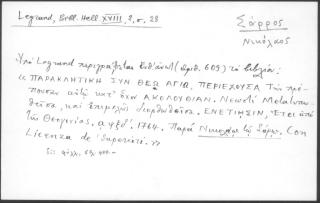 Legrand, Bibl. Hell. XVIII, 2, σ. 23
Σάρρος
Νικόλαος
Ὑπὸ Legrand περιγράφεται (ἀριθ. 605) τὸ βιβλίον:
« ΠΑΡΑΚΛΗΤΙΚΗ ΣΥΝ ΘΕΩ ΑΓΙΩ, ΠΕΡΙΕΧΟΥΣΑ Τὴν πρέ-
πουσαν αὐτῇ ΑΚΟΛΟΥΘΙΑΝ. Νεωστὶ Μετατυπω-
θεῖσα, καὶ ἐπιμελῶς διορθωθεῖσα. ΕΝΕΤΙΗΣΙΝ, Ἔτει ἀπὸ
τῆς Θεογονίας, αψξδ'. 1764. Παρὰ Νικολάῳ τῷ Σάρῳ. Con
Licenza de' Superiori. »